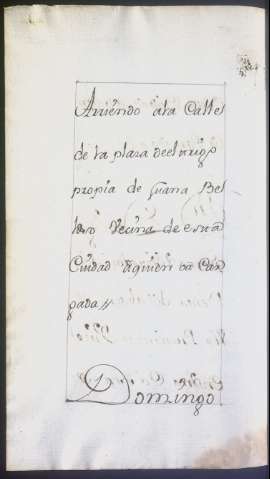 Arriendo ala Calle
de la plaza deel trigo
propia de Juana Be
llero Vecina de esta
Ciudad aquien va Car
gada //
Domingo